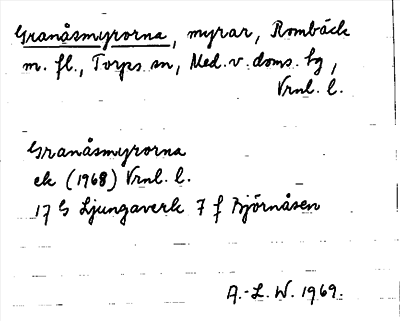 Granåsmyrorna, myrar, Rombäck
m. fl., Torps sn, Med. v. doms. bg,
Vrnl. l.
Granåsmyrorna
ek (1968) Vrnl. l.
17 G Ljungaverk 7 f Björnåsen
A.-L. W. 1969.